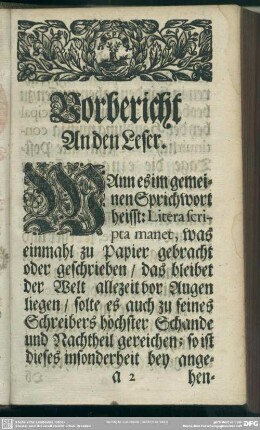 Vorbericht
An den Leser.
WAnn es im gemei-
nen Sprichwort
heisst: Litera scri-
pta manet, was
einmahl zu Papier gebracht
oder geschrieben / das bleibet
der Welt allezeit vor Augen
liegen / solte es auch zu seines
Schreibers höchster Schande
und Nachtheil gereichen: so ist
dieses insonderheit bey ange-
a 2
hen-